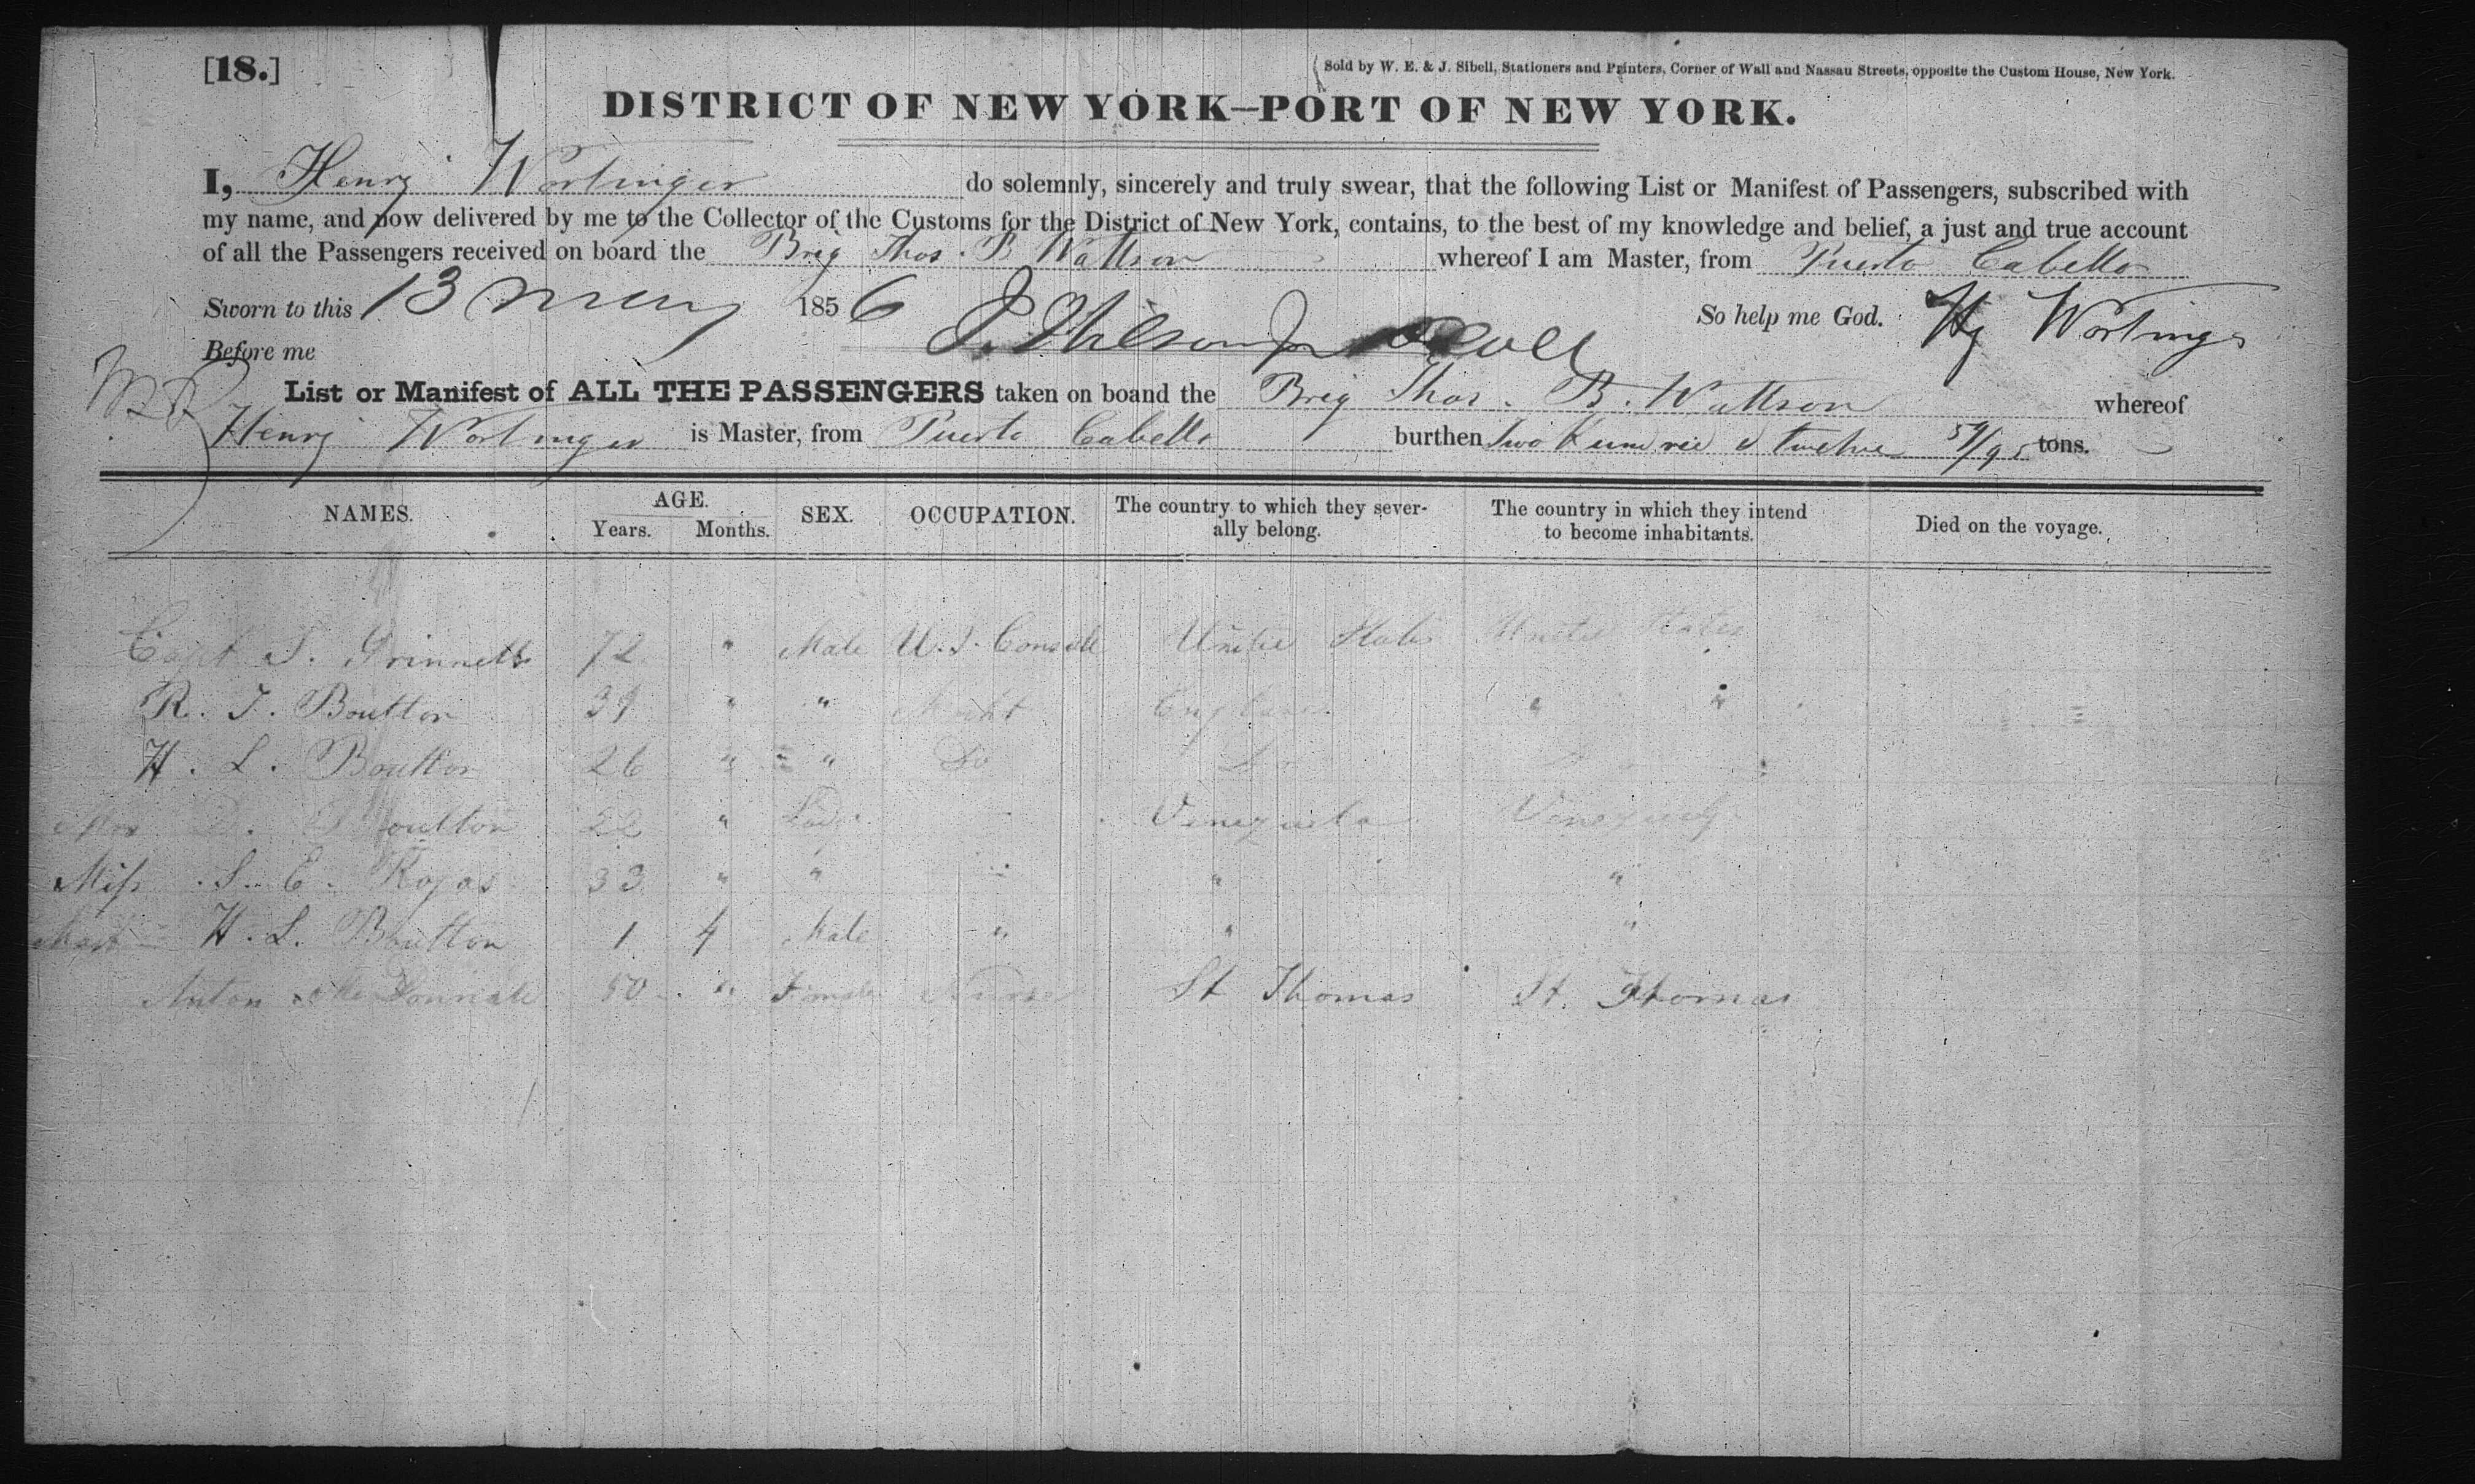 [18.]
Sold by W. E. & J. Sibell, Stationers and Printers, Corner of Wall and Nassau Streets, opposite the Custom House, New York.
DISTRICT OF NEW YORK—PORT OF NEW YORK.
I, Henry Wortinger do solemnly, sincerely and truly swear, that the following List or Manifest of Passengers, subscribed with
my name, and now delivered by me to the Collector of the Customs for the District of New York, contains, to the best of my knowledge and belief, a just and true account
of all the Passengers received on board the Brig Thos. B Wattson whereof I am Master, from Puerto Cabello
Sworn to this 13 May 1856 So help me God. Hy Wortinger
Before me
List or Manifest of ALL THE PASSENGERS taken on boand the Brig Thos. B. Wattson whereof
Henry Wortinger is Master, from Puerto Cabello burthen Two Hundred & twelve 54/95 tons.
NAMES. AGE. Years. Months. SEX. OCCUPATION. The country to which they severally belong. The country in which they intend to become inhabitants. Died on the voyage.
Capt S. Grinnell 72 " Male U.S. Consul United States United States
R. J. Boulton 39 " " Mcht England " "
H. L. Boulton 26 " " Do Do
Mrs D. Boulton 22 " Lady Venezuela Venezuela
Miss S. E. Rojas 33 " " " "
Mast H. L. Boulton 1 4 Male " " "
Anton 50 " Female Nurse St Thomas St. Thomas